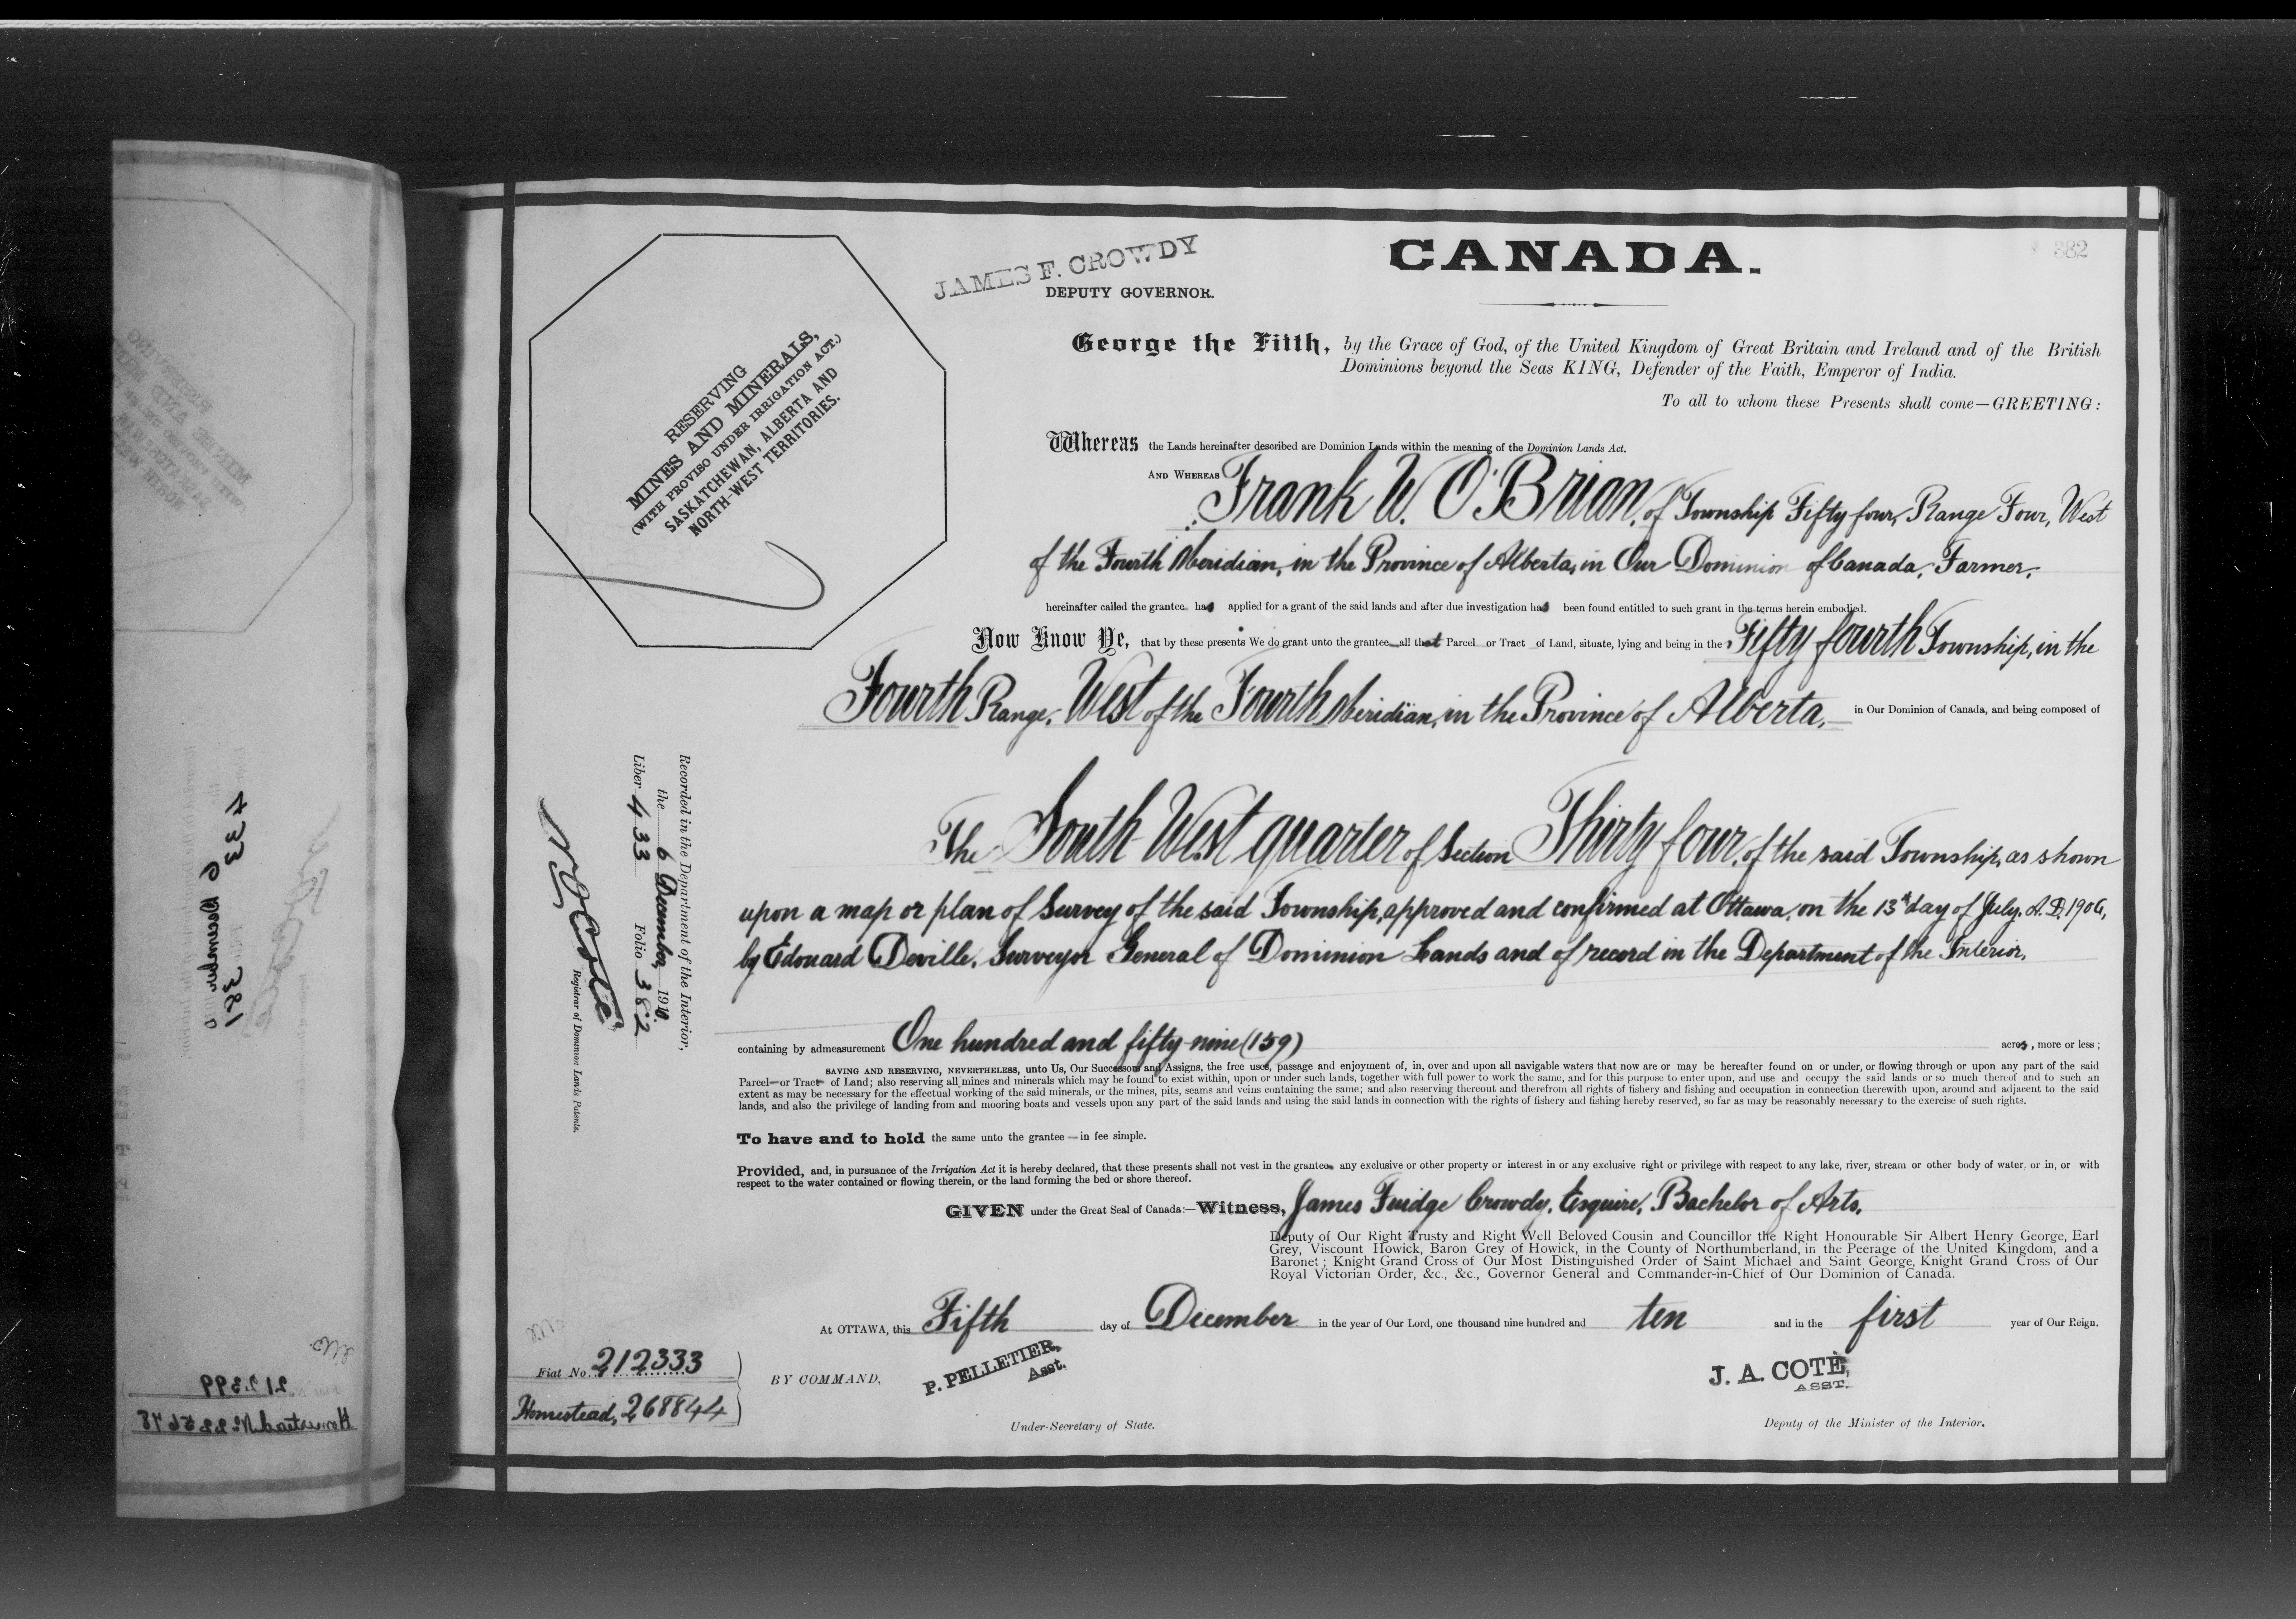 382
CANADA.
JAMES F. CROWDY
DEPUTY GOVERNOR.
RESERVING
MINES AND MINERALS,
(WITH PROVISO UNDER IRRIGATION ACT.)
SASKATCHEWAN, ALBERTA AND
NORTH-WEST TERRITORIES.
George the Fifth, by the Grace of God, of the United Kingdom of Great Britain and Ireland and of the British
Dominions beyond the Seas KING, Defender of the Faith, Emperor of India.
To all to whom these Presents shall come—GREETING:
Whereas the Lands hereinafter described are Dominion Lands within the meaning of the Dominion Lands Act.
AND WHEREAS Frank W. O'Brian, of Township Fifty four, Range Four, West
of the Fourth Meridian, in the Province of Alberta, in Our Dominion of Canada, Farmer,
hereinafter called the grantee has applied for a grant of the said lands and after due investigation has been found entitled to such grant in the terms herein embodied.
Now Know Ye, that by these presents We do grant unto the grantee all that Parcel or Tract of Land, situate, lying and being in the Fifty fourth Township, in the
Fourth Range, West of the Fourth Meridian, in the Province of Alberta, in Our Dominion of Canada, and being composed of
The South West quarter of Section Thirty four, of the said Township, as shown
upon a map or plan of Survey of the said Township, approved and confirmed at Ottawa, on the 13th day of July, A.D. 1906,
by Edouard Deville, Surveyor General of Dominion Lands and of record in the Department of the Interior,
containing by admeasurement One hundred and fifty-nine (159) acres, more or less;
SAVING AND RESERVING, NEVERTHELESS, unto Us, Our Successors and Assigns, the free uses, passage and enjoyment of, in, over and upon all navigable waters that now are or may be hereafter found on or under, or flowing through or upon any part of the said
Parcel or Tract of Land; also reserving all mines and minerals which may be found to exist within, upon or under such lands, together with full power to work the same, and for this purpose to enter upon, and use and occupy the said lands or so much thereof and to such an
extent as may be necessary for the effectual working of the said minerals, or the mines, pits, seams and veins containing the same; and also reserving thereout and therefrom all rights of fishery and fishing and occupation in connection therewith upon, around and adjacent to the said
lands, and also the privilege of landing from and mooring boats and vessels upon any part of the said lands and using the said lands in connection with the rights of fishery and fishing hereby reserved, so far as may be reasonably necessary to the exercise of such rights.
To have and to hold the same unto the grantee in fee simple.
Provided, and, in pursuance of the Irrigation Act it is hereby declared, that these presents shall not vest in the grantee any exclusive or other property or interest in or any exclusive right or privilege with respect to any lake, river, stream or other body of water, or in, or with
respect to the water contained or flowing therein, or the land forming the bed or shore thereof.
GIVEN under the Great Seal of Canada:—Witness, James Fuidge Crowdy, Esquire, Bachelor of Arts,
Deputy of Our Right Trusty and Right Well Beloved Cousin and Councillor the Right Honourable Sir Albert Henry George, Earl
Grey, Viscount Howick, Baron Grey of Howick, in the County of Northumberland, in the Peerage of the United Kingdom, and a
Baronet; Knight Grand Cross of Our Most Distinguished Order of Saint Michael and Saint George, Knight Grand Cross of Our
Royal Victorian Order, &c., &c., Governor General and Commander-in-Chief of Our Dominion of Canada.
At OTTAWA, this Fifth day of December in the year of Our Lord, one thousand nine hundred and ten and in the first year of Our Reign.
BY COMMAND,
P. PELLETIER,
Asst.
Under-Secretary of State.
J. A. COTÉ,
ASST.
Deputy of the Minister of the Interior.
Recorded in the Department of the Interior,
the 6 December, 1910.
Liber 433 Folio 382
N. O. Coté
Registrar of Dominion Lands Patents.
Fiat No. 212333
Homestead, 268844
433
6 December
381
212399
Homestead No